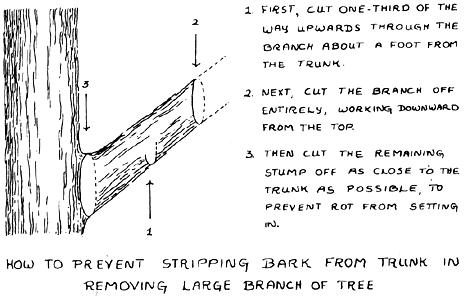 2
3
1
1. FIRST, CUT ONE-THIRD OF THE
WAY UPWARDS THROUGH THE
BRANCH ABOUT A FOOT FROM
THE TRUNK.
2. NEXT, CUT THE BRANCH OFF
ENTIRELY, WORKING DOWNWARD
FROM THE TOP.
3. THEN CUT THE REMAINING
STUMP OFF AS CLOSE TO THE
TRUNK AS POSSIBLE, TO
PREVENT ROT FROM SETTING
IN.
HOW TO PREVENT STRIPPING BARK FROM TRUNK IN
REMOVING LARGE BRANCH OF TREE